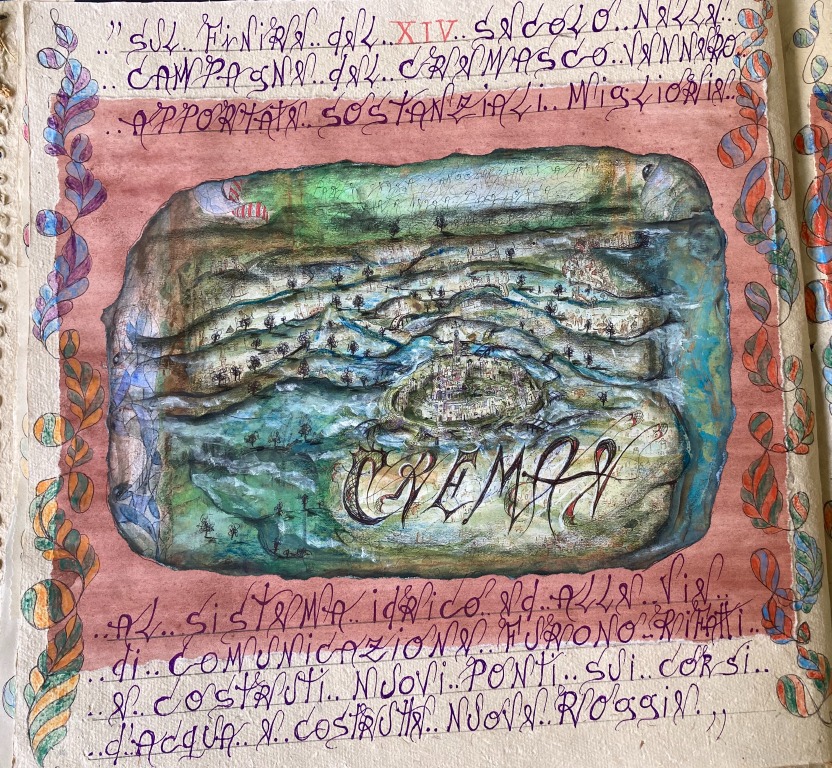 .." SUL.. FINIRE.. DEL.. XIV.. SECOLO.. NELLE..
.. CAMPAGNE.. DEL.. CREMASCO.. VENNERO..
.. APPORTATE.. SOSTANZIALI.. MIGLIORIE..
CREMA
.. AL.. SISTEMA.. idRICO.. Ed.. ALLE.. VIE..
.. di.. COMUNICAZIONE.. FURONO.. RIFATTI..
.. E.. COSTRUTI.. NUOVI.. PONTI.. SUI.. CORSI..
.. d'ACQUA.. E.. COSTRUTTE.. NUOVE.. ROGGIE.,,